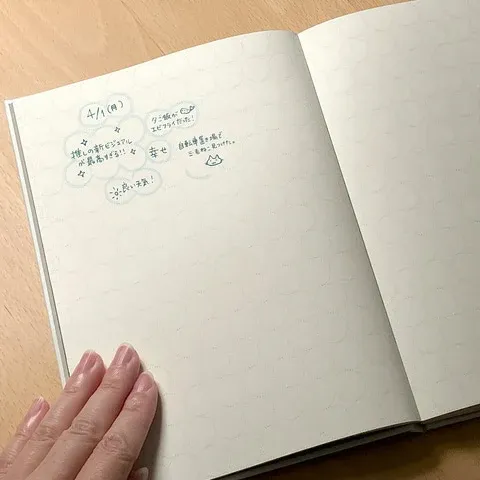 4/1(月)
推しの新ビジュアル
が最高すぎる!!
夕ご飯が
エビフライだった!
幸せ
自転車置き場で
三毛ねこ見つけた。
良い天気!